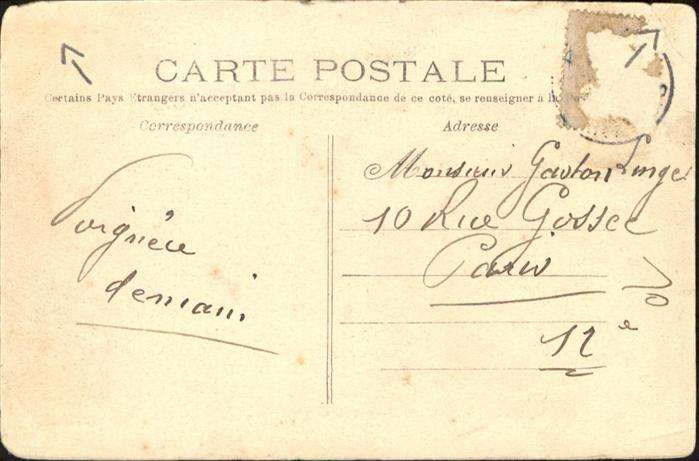 CARTE POSTALE
Certains Pays Etrangers n'acceptant pas la Correspondance de ce coté, se renseigner à la
Correspondance
Adresse
demain
Monsieur Gaston
10 Rue Gossec
Paris
12e